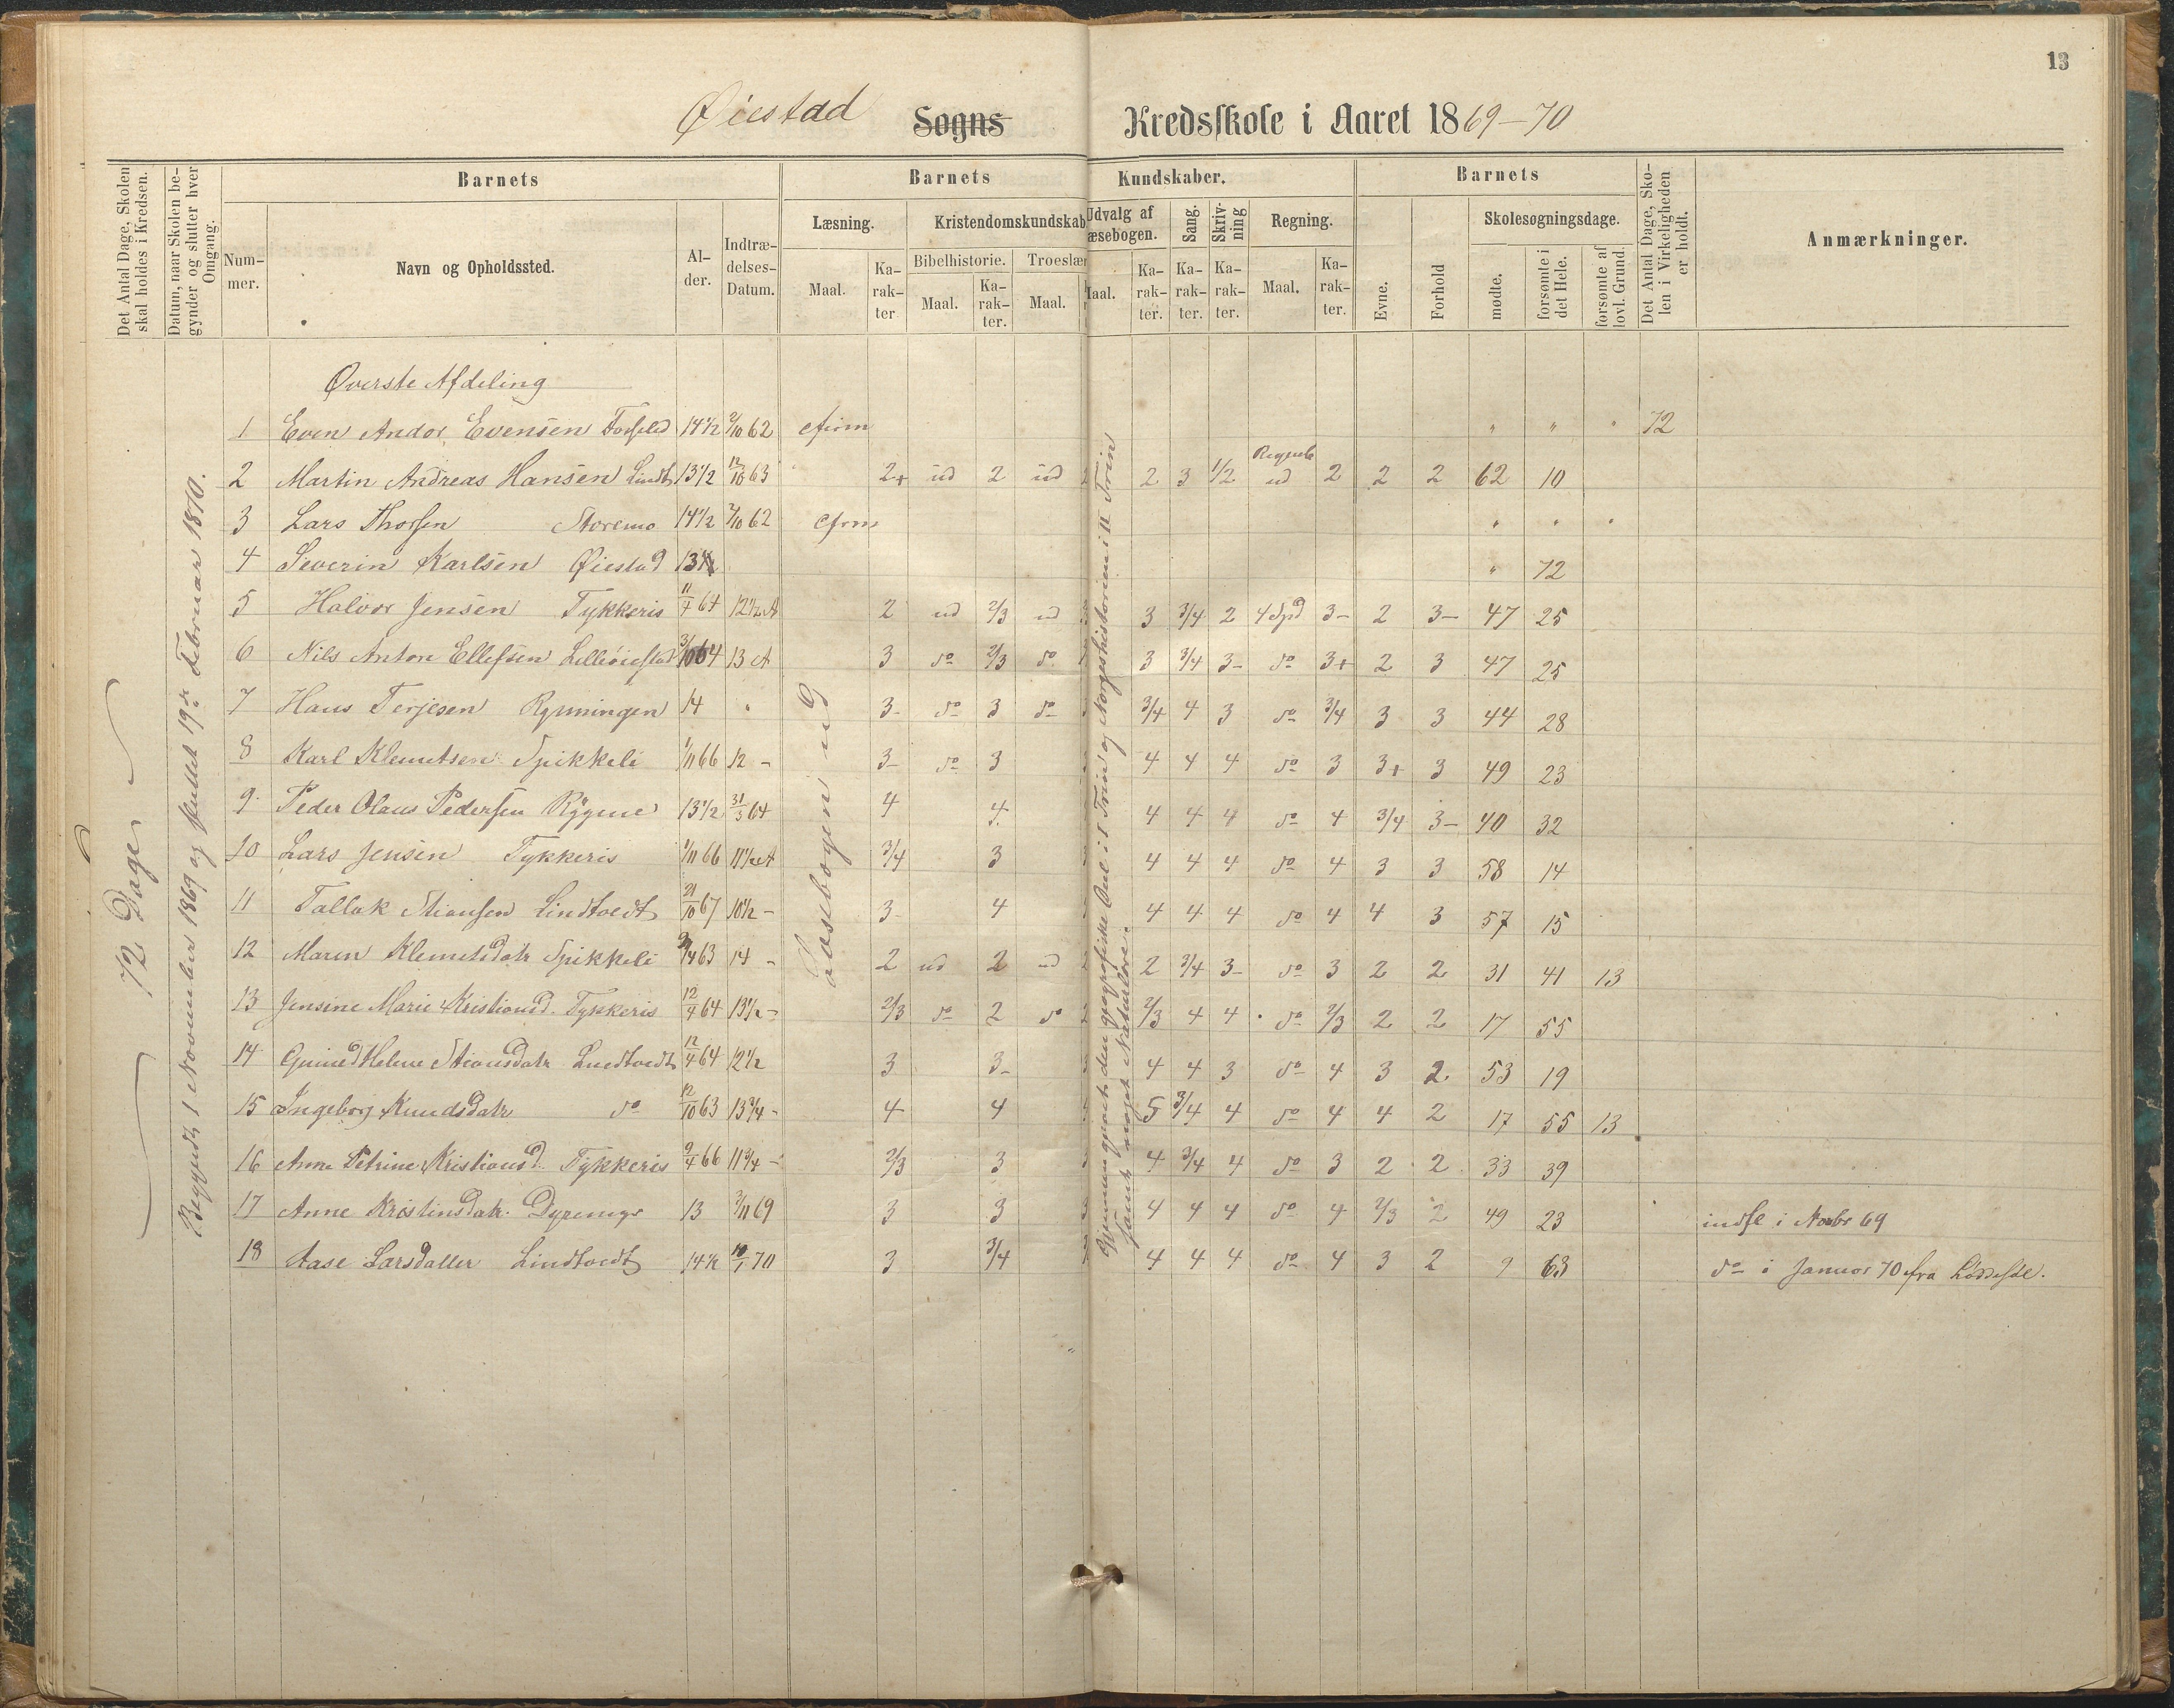 13
Øiestad Sogns Kredsskole i Aaret 1869-70
Det Antal Dage, Skolen skal holdes i Kredsen.
Datum, naar Skolen begynder og slutter hver Omgang.
Barnets
Barnets
Kundskaber.
Barnets
Det Antal Dage, Skolen i Virkeligheden er holdt.
Anmærkninger.
Nummer.
Navn og Opholdssted.
Alder.
Indtrædelses-Datum.
Læsning.
Kristendomskundskab
Udvalg af Læsebogen.
Sang.
Skrivning
Regning.
Evne.
Forhold
Skolesøgningsdage.
Maal.
Karakter
Bibelhistorie.
Troeslær
Maal.
Karakter.
Maal.
Maal.
Karakter.
Karakter.
Karakter.
Maal.
Karakter.
mødte.
forsømte i det Hele.
forsømte af lovl. Grund.
72 Dage
Begyndt 1 November 1869 og sluttet 19de Februar 1870.
Læsebogen ud
Øverste Afdeling
1 Even Andor Evensen 14½ 2/10 62 " " " 72
2 Martin Andreas Hansen Lindt 13½ 12/10 63 2+ ud 2 ud 2 3 1/2 ud 2 2 2 62 10
3 Lars Thorsen Storemo 14½ 2/10 62 " " "
4 Severin Karlsen Øiestad 13½ " 72
5 Halvor Jensen Tykkeris 11/4 64 12½ A 2 ud 2/3 ud 3 3/4 2 4 Spd 3- 2 3- 47 25
6 Nils Anton Ellefsen Lilleøiestad 3/10 64 13 A 3 do 2/3 do 3 3/4 3- do 3+ 2 3 47 25
7 Hans Terjesen Rynningen 14 " 3- do 3 do 3/4 4 3 do 3/4 3 3 44 28
8 Karl Klemetsen Spikkeli 1/11 66 12 - 3- do 3 4 4 4 do 3 3+ 3 49 23
9 Peder Olaus Pedersen Rygene 13½ 31/3 64 4 4. 4 4 4 do 4 3/4 3- 40 32
10 Lars Jensen Tykkeris 1/11 66 11½ A 3/4 3 4 4 4 do 4 3 3 58 14
11 Tallak Stiansen Lindtvedt 21/10 67 10½ - 3- 4 4 4 4 do 4 4 3 57 15
12 Maren Klemetsdatr Spikkeli 63 14 - 2 ud 2 ud 2 3/4 3- do 3 2 2 31 41 13
13 Jensine Marie Kristiansd. Tykkeris 12/4 64 13½ - 2/3 do 2 do 2/3 4 4 do 2/3 2 2 17 55
14 Helene Stiansdatr Lindtvedt 12/4 64 12½ 3 3- 4 4 3 do 4 3 2 53 19
15 Ingeborg Knudsdatr do 12/10 63 13¾ - 4 4 5 3/4 4 do 4 4 2 17 55 13
16 Anne Petrine Kristiansd. Tykkeris 9/4 66 11¾ - 2/3 3 4 3/4 4 do 3 2 2 33 39
17 Anne Kristinsdatr. 13 2/11 69 3 3 4 4 4 do 4 2/3 2 49 23 indfl i Novbr 69
18 Aase Larsdatter Lindtvedt 14½ 10/1 70 3 3/4 4 4 4 do 4 3 2 9 63 do i Januar 70 fra Løddesøl.
Gjennemgaaet den geografiske Deel i I Trin og Norgeshistorien i II Trin
samt noget Naturlære.